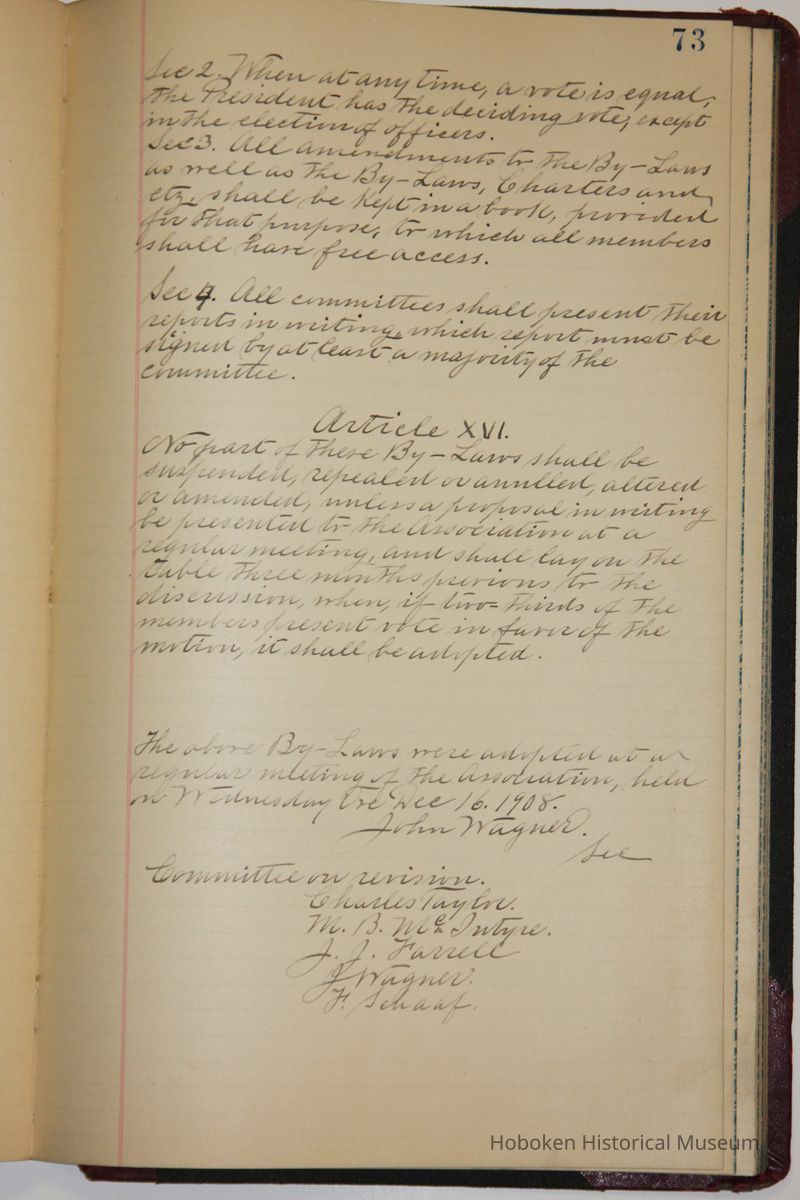 73
Sec 2. When at any time, a vote is equal,
the President has the deciding vote, except
in the election of officers.
Sec 3. All amendments to the By-Laws
as well as the By-Laws, Charters and
etz, shall be kept in a book, provided
for that purpose, to which all members
shall have free access.
Sec 4. All committees shall present their
reports in writing, which report must be
signed by at least a majority of the
committee.
Article XVI.
No part of these By-Laws shall be
suspended, repealed or anulled, altered
or amended, unless a proposal in writing
be presented to the Association at a
regular meeting, and shall lay on the
table three months previous to the
discussion, when, if two=thirds of the
members present vote in favor of the
motion, it shall be adopted.
The above By-Laws were adopted at a
regular meeting of the Association, held
on Wednesday Dec 16. 1908.
John Wagner.
Sec
Committee on revision.
Charles Taylor.
M. B. McIntyre.
J. J. Farrell
J Wagner.
F. Schaaf.
Hoboken Historical Museum